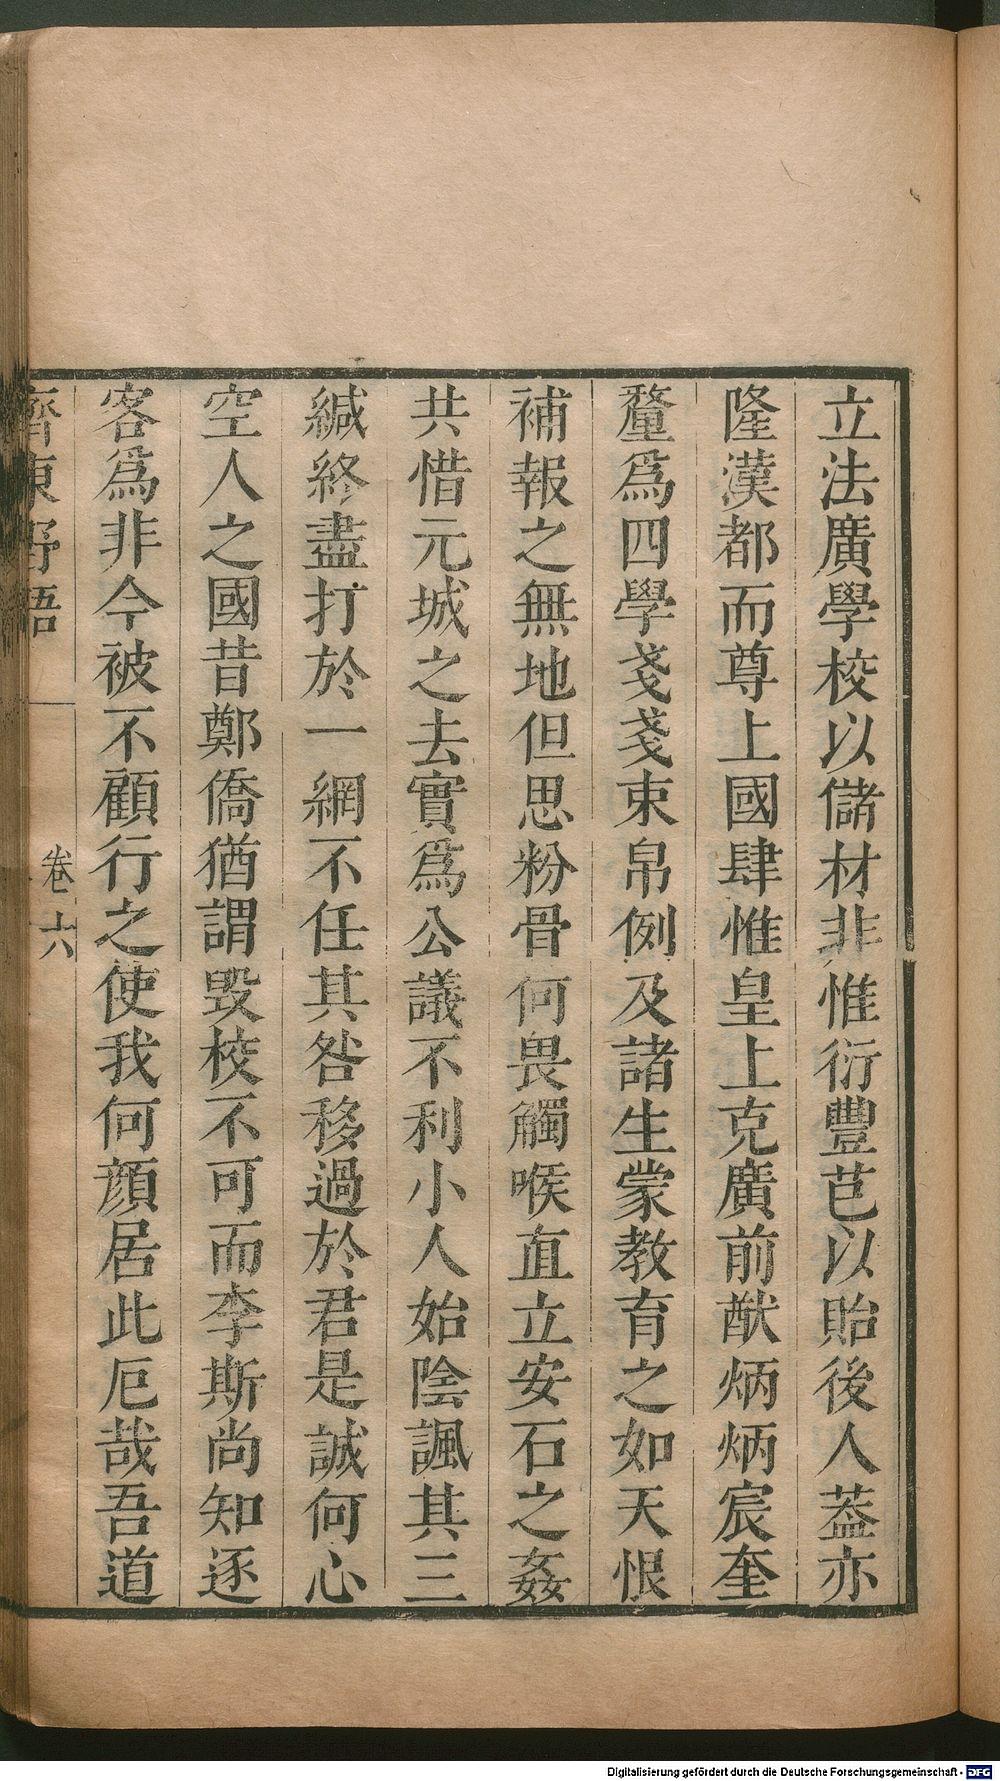 立法廣學校以儲材非惟衍豐芑以貽後人葢亦
隆漢都而尊上國肆惟皇上克廣前猷炳炳宸奎
釐爲四學戔戔束帛例及諸生蒙教育之如天恨
補報之無地但思粉骨何畏觸喉直立安石之姦
共惜元城之去實爲公議不利小人始陰諷其三
緘終盡打於一網不任其咎移過於君是誠何心
空人之國昔鄭僑猶謂毀校不可而李斯尚知逐
客爲非今被不顧行之使我何顔居此厄哉吾道
齊東野語
卷六
Digitalisierung gefördert durch die Deutsche Forschungsgemeinschaft - DFG